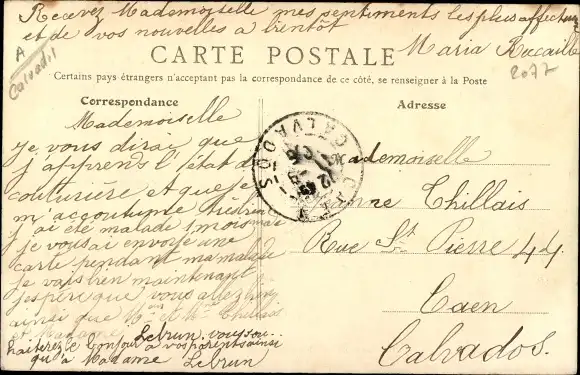 Recevez Mademoiselle mes sentiments les plus affectueux
et de vos nouvelles a bientôt
Maria
A
Calvados
2077
CARTE POSTALE
Certains pays étrangers n'acceptant pas la correspondance de ce côté, se renseigner à la Poste
Correspondance
Mademoiselle
je vous dirai que
j'apprens l'état de
couturière et que je
m'accoutume très bien
j ai été malade 1 mois mais
je vousai envoye une
carte pendant ma maladie
je vais bien maintenant
j'espère que vous allez bien
ainsi que Mr et Mme Thillais
et Madame Lebrun. vous
souhaiterez le bonjour a vos parents ainsi
qu'à Madame Lebrun
Adresse
Mademoiselle
Thillais
Rue St Pierre 44
Caen
Calvados.
CALVADOS